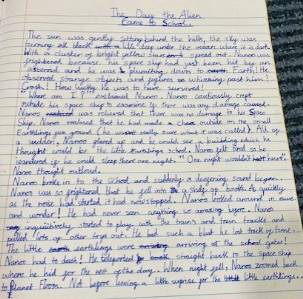 The Day the Alien
Came to School
The sun was gently setting behind the hills, the sky was
turning all black with a deep side down the moon where is a dark
With a cluster of bright yellow spread out. Nano was
frightened because his space ship had just been hit by an
asteroid and he was plummeting down to Earth! He
observed strange objects and figures whizzing past him!
Crash! How lucky he was to have survived!
"Where am I?" exclaimed Nano. Nano cautiously crept
outside his space ship to examine if there was any damage caused.
Nano was relieved that there was no damage to his Space
Ship. Nano noticed that he had made a crater outside on the small
Earthlings ground (he wasn't really sure what it was called). All of
a sudden, Nano glanced up and he could see a building which he
thought would be the little Earthlings school. Nano felt tired so he
wandered if he could sleep there one night. "One night wouldn't hurt",
Nano thought outloud.
Nano broke in to the school and suddenly a deafening sound began.
Nano was so frightened that he fell into a shelf of books. As quickly
as the noise had started it had now stopped. Nano looked around in awe
and wonder! He had never seen anything so amazing before. Nano
inquisitively started to play with the trains and train tracks and
pulled lots of other toys out. He had such a blast he lost track of time.
The little earthlings were arriving at the school gates!
Nano had to dash! He teleported straight back to the space ship
where he hid for the rest of the day. When night fell, Nano zoomed back
to Planet Moon. Not before leaving a little surprise for the little earthlings...